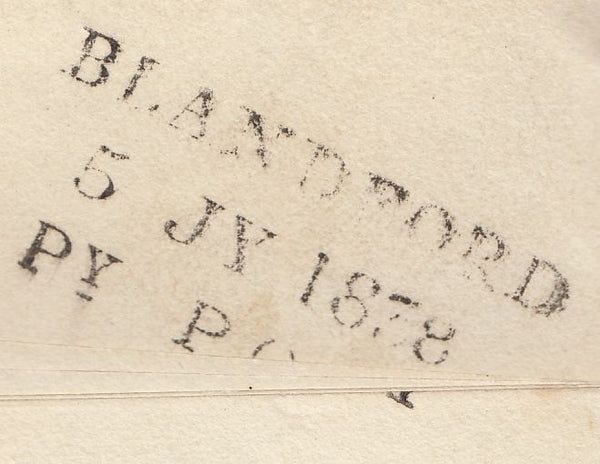 BLANDFORD
5 JY 1838
PY